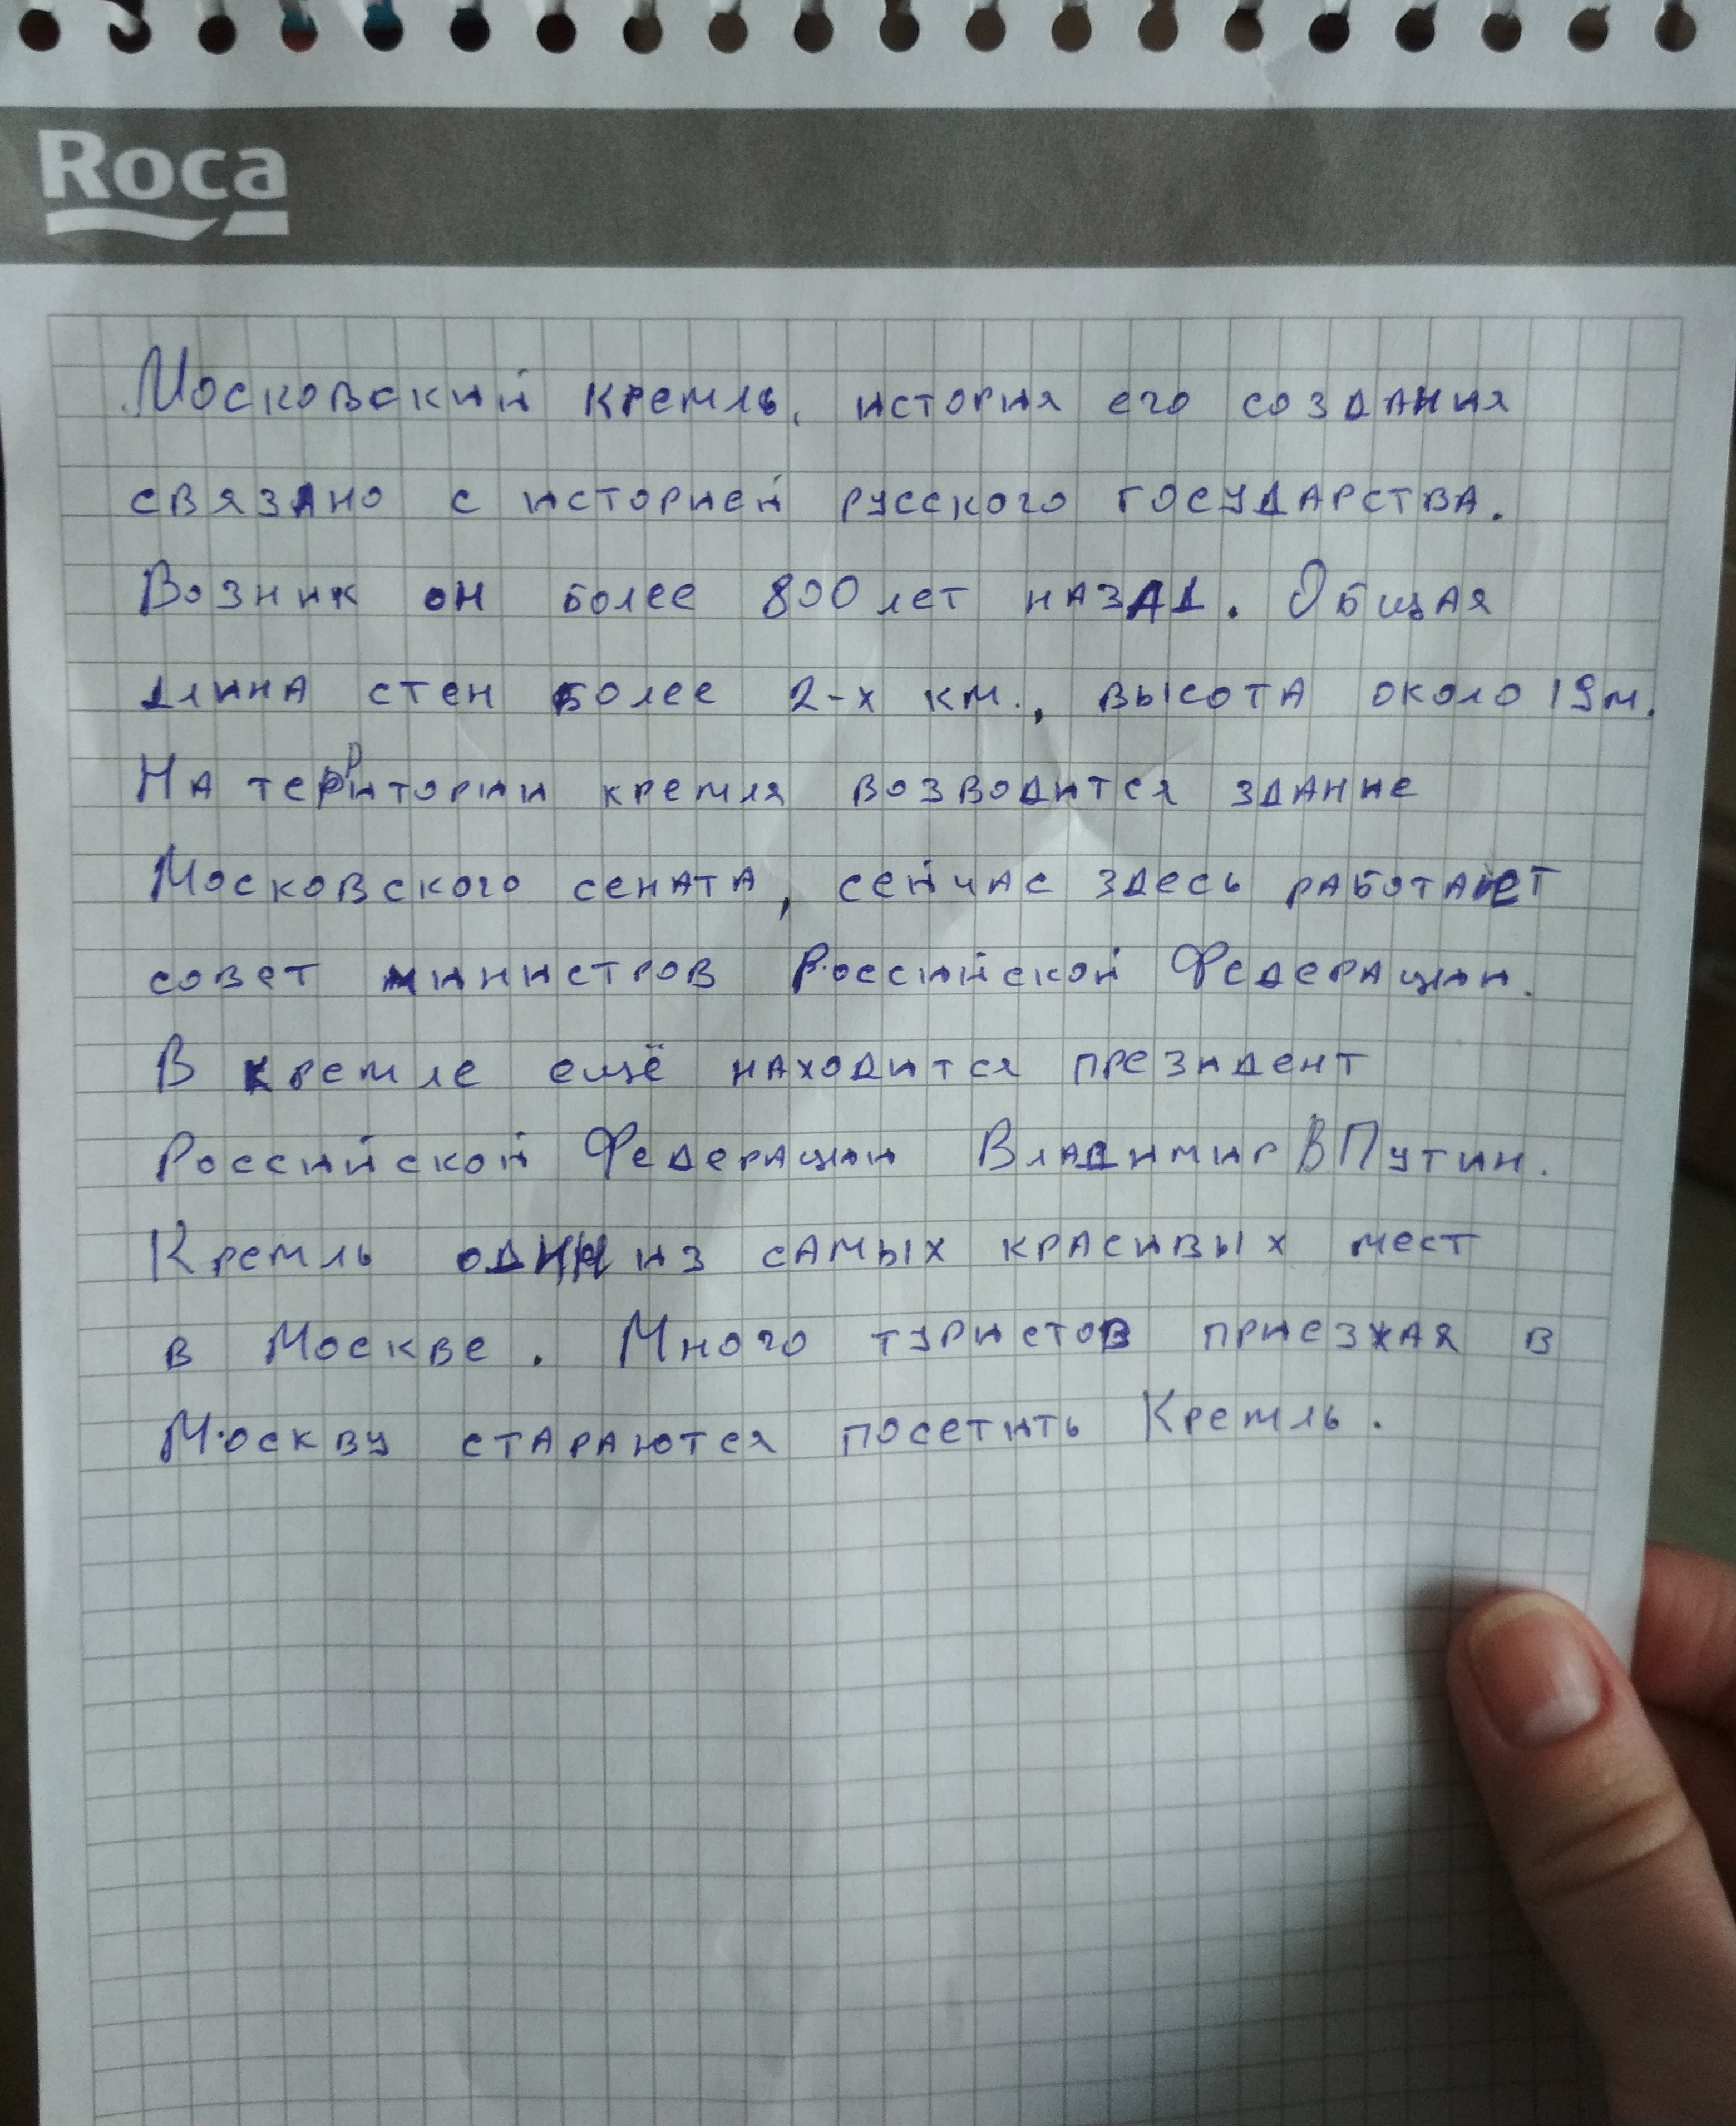 Roca
Московский кремль, история его создания
связано с историей русского государства.
Возник он более 800 лет назад. Общая
длина стен более 2-х км., высота около 19м.
На территории кремля возводится здание
Московского сената, сейчас здесь работает
совет министров Российской Федерации.
В кремле ещё находится президент
Российской Федерации Владимир В Путин.
Кремль один из самых красивых мест
в Москве. Много туристов приезжая в
Москву стараются посетить Кремль.